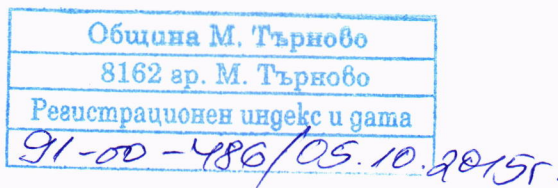 Община М. Търново
8162 гр. М. Търново
Регистрационен индекс и дата
91-00-486/05.10.2015г.